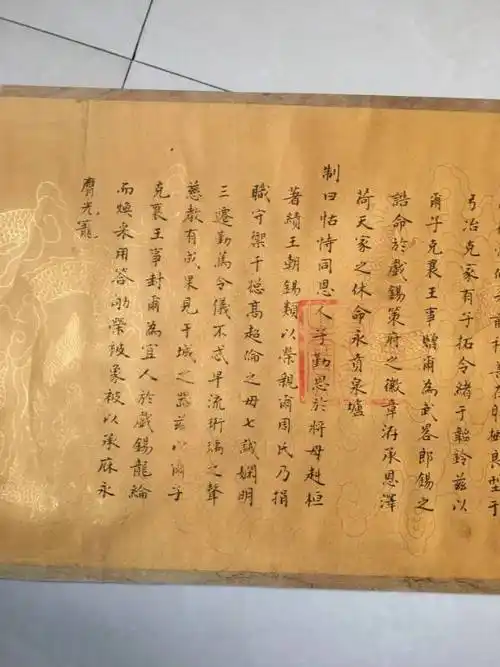 良型于
弓冶克家有子拓令緒于韜鈐茲以
爾子克襄王事贈爾為武畧郎錫之
誥命於戲錫策府之徽章洊承恩澤
荷天家之休命永賁泉壚
制曰怙恃同恩人子勤思於將母赳桓
著績王朝錫類以榮親爾周氏乃捐
職守禦千總高超倫之母七誡嫻明
三遷勤篤令儀不忒早流珩瑀之聲
慈教有成果見干城之器茲以爾子
克襄王事封爾為宜人於戲錫龍綸
而煥采用答劬勞被象服以承庥永
膺光寵